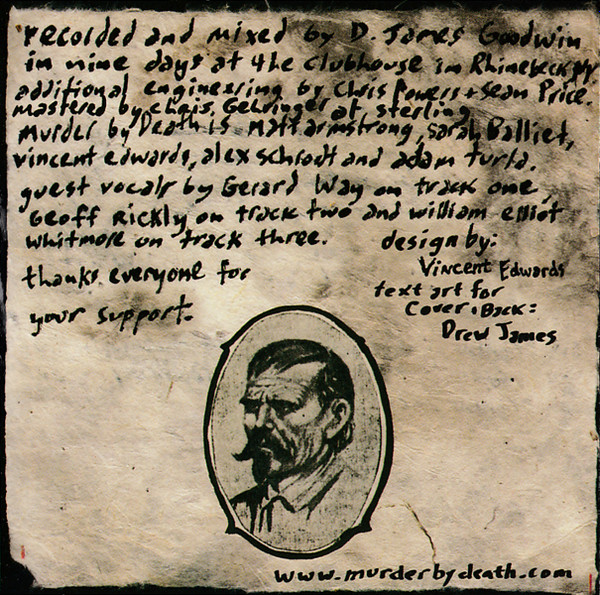 recorded and mixed by D. James Goodwin
in nine days at the clubhouse in Rhinebeck NY
additional engineering by Chris Powers + Sean Price.
mastered by Chris Gehringer at sterling
murder by Death is matt armstrong, sarah Balliet,
vincent edwards, alex schrodt and adam turla.
guest vocals by Gerard Way on track one
Geoff Rickly on track two and william elliot
whitmore on track three.
design by:
Vincent Edwards
text art for
Cover + Back:
Drew James
thanks everyone for
your support.
www.murderbydeath.com